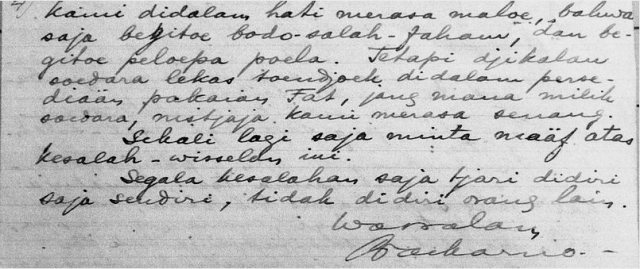 kami didalam hati merasa maloe, bahwa
saja begitoe bodo-salah-faham, dan be-
gitoe peloepa poela. Tetapi djikalau
soedara lekas toendjoek didalam perse-
diaän pakaian Fat, jang mana milik
soedara, nistjaja kami merasa senang.
Sekali lagi saja minta maäf atas
kesalah-wisselan ini.
Segala kesalahan saja tjari didiri
saja sendiri, tidak didiri orang lain.
Wassalam